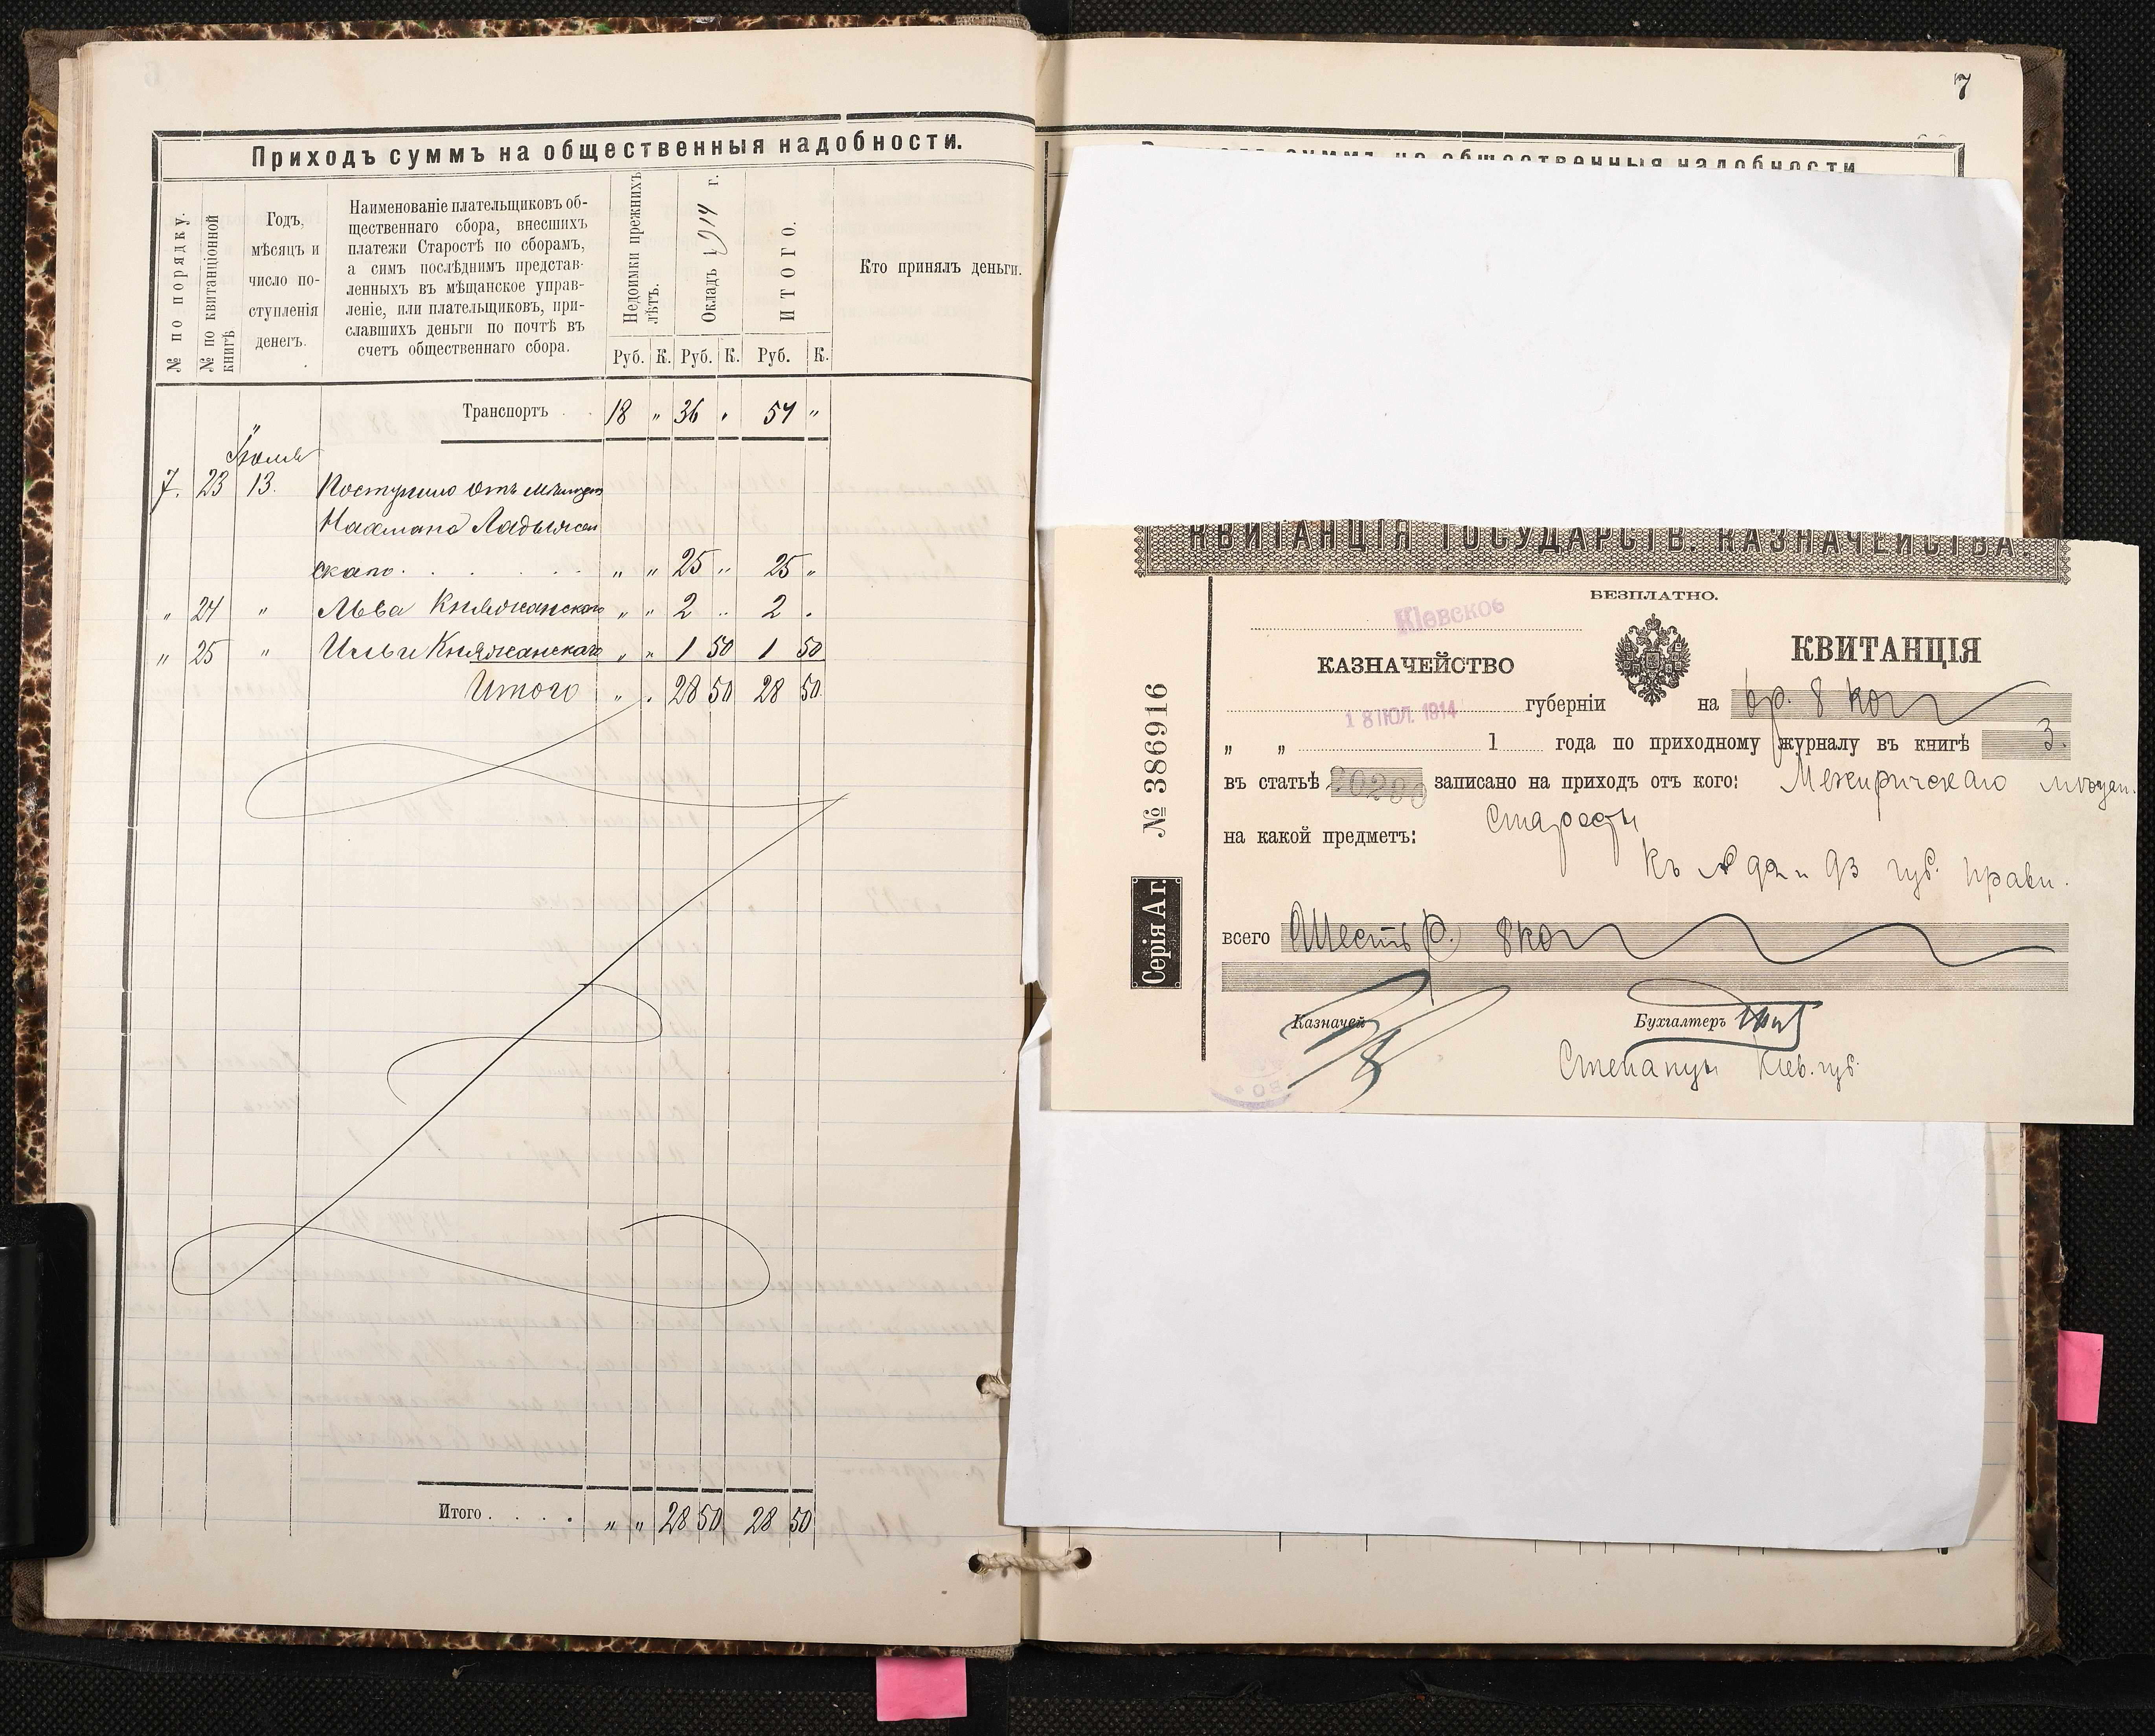 7
Приходъ суммъ на общественныя надобности.
суммъ на общественныя надобности
№ по порядку.
№ по квитанціонной книгѣ
Годъ,
мѣсяцъ и
число по-
ступленія
денегъ.
Наименованіе плательщиковъ об-
щественнаго сбора, внесшихъ
платежи Старостѣ по сборамъ,
а симъ послѣднимъ представ-
ленныхъ въ мѣщанское управ-
леніе, или плательщиковъ, при-
славшихъ деньги по почтѣ въ
счетъ общественнаго сбора.
Недоимки прежнихъ лѣтъ.
Окладъ 1914 г.
ИТОГО.
Кто принялъ деньги.
Руб. К. Руб. К. Руб. К.
Транспортъ . . 18 „ 36 „ 54 „
Іюля
7. 23 13. Поступило отъ мѣщан
Нахмана Ладыжен
скаго . . . . . „ „ 25 „ 25 „
„ 24 „ Льва Княжанскаго „ „ 2 „ 2 „
„ 25 „ Ильи Княжанскаго „ „ 1 50 1 50
Итого „ „ 28 50 28 50
Итого . . . . „ „ 28 50 28 50
КВИТАНЦІЯ ГОСУДАРСТВ. КАЗНАЧЕЙСТВА.
БЕЗПЛАТНО.
Кіевское
КАЗНАЧЕЙСТВО
КВИТАНЦІЯ
губерніи на 6 р. 8 коп
18 ІЮЛ. 1914
„ „ 1 года по приходному журналу въ книгѣ 3.
въ статьѣ записано на приходъ отъ кого: Межиричскаго мѣщан.
Старосты
на какой предметъ:
Къ № 92 и 93 губ. правл.
всего Шесть р. 8 коп
Казначей
Бухгалтеръ
Степанцы Кіев. губ.
№ 386916
Серія А г.